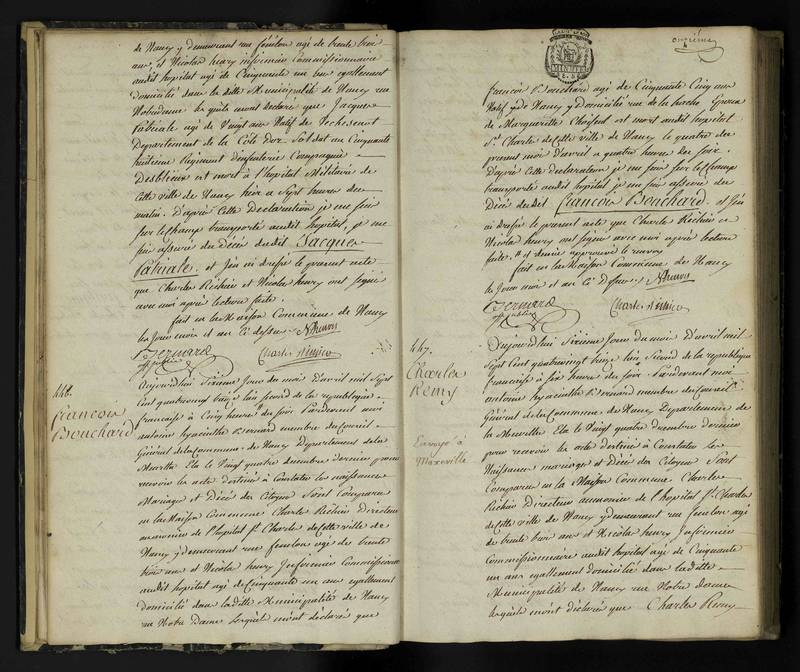 de Nancy y demeurant rue fénélon agé de trente trois
ans, et Nicolas henry infirmier Commissionnaire
audit hopital agé de Cinquante un ans egallement
Domicilié dans la ditte Municipalité de Nancy rue
Notredame les quels m'ont declaré que Jacques
Labriale agé de Vingt ans Natif de
Departement de la Côte D'or Soldat au Cinquante
huitieme Regiment d'infanterie Compagnie
est mort à l'hopital Militaire de
Cette ville de Nancy hier a Sept heures du
matin. D'après Cette Declaration je me suis
sur le champ transporté audit hopital, je me
suis assuré du Décé dudit Jacques
Labriale, et J'en ai dressé le present acte
que Charles Réchin et Nicolas henry ont signé
avec moi après lecture faite.
fait en la Maison Commune de Nancy
les Jour mois et an Cÿ dessus. NHenry
Bernard
off public
Charles Réchin
446.
François
Bouchard
Aujourd'hui Sixieme Jour du mois D'avril mil Sept
Cent quatrevingt treize l'an second de la republique
francaise à Cinq heures du soir Pardevant moi
antoine hyacinthe Bernard membre du Conseil
Général de la Commune de Nancy Departement de la
Meurthe Elu le Vingt quatre decembre dernier pour
recevoir les acte Destinés à Constater les naissances
Mariages et Décés des Citoyens Sont Comparu
en la Maison Commune Charles Réchin Directeur
œconome de l'hopital St. Charles de Cette ville de
Nancy y demeurant rue fénélon agé de trente
trois ans et Nicolas henry Infirmier Commissionnaire
audit hopital agé de Cinquante un ans egallement
domicilié dans la ditte Municipalité de Nancy
rue Notre Dame lesquels m'ont déclaré que
onzième
françois Bouchard agé de Cinquante Cinq ans
Natif de Nancy y Domicilié rue de la hache Epoux
de Marguerite Choiseul est mort audit hopital
St. Charles de Cette ville de Nancy le quatre du
present mois d'avril a quatre heures du soir.
D'après Cette declaration je me suis sur le champ
transporté audit hopital je me suis assuré du
Décé dudit François Bouchard. et J'en
ai dressé le present acte que Charles Réchin et
Nicolas henry ont signé avec moi après lecture
fait en la Maison Commune de Nancy
les Jour mois et an Cÿ Dessus. NHenry
Bernard
off public
Charles Réchin
447.
Charles
Remy
Envoyé à
Maxeville
Aujourd'hui Sixieme Jour du mois D'avril mil
Sept Cent quatrevingt treize l'an Second de la republique
Francaise à six heures du soir Pardevant moi
antoine hyacinthe Bernard membre du Conseil
Général de la Commune de Nancy Departement de
la Meurthe Elu le Vingt quatre Decembre dernier
pour recevoir les acte destinés à Constater les
Naissances mariages et Décés des Citoyens Sont
Comparu en la Maison Commune Charles
Réchin Directeur œconome de l'hopital St. Charles
de Cette ville de Nancy y demeurant rue fénélon agé
de trente trois ans et Nicolas henry Infirmier
Commissionnaire audit hopital agé de Cinquante
un ans egallement domicilié dans la ditte
Municipalité de Nancy rue Notre Dame
lesquels m'ont déclaré que Charles Remy